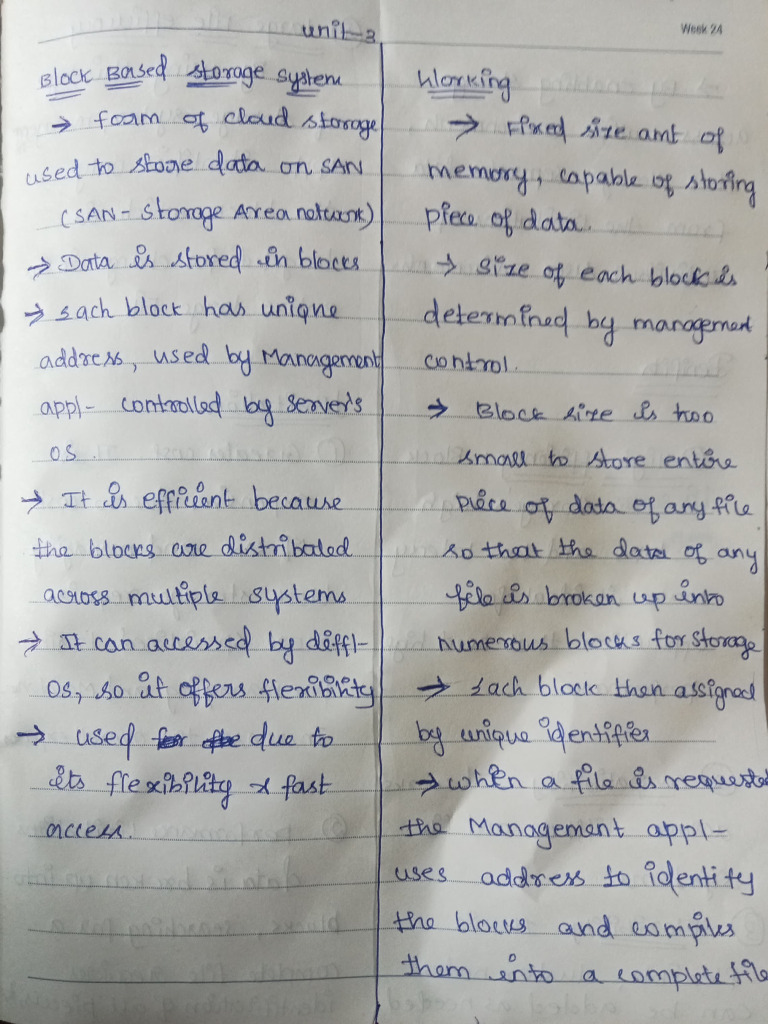 unit-3
Week 24
Block Based storage system
→ foam of cloud storage
used to stoae data on SAN
(SAN - Storage Area network)
→ Data is stored in blocks
→ Each block has unique
address, used by Management
appl- controlled by server's
OS.
→ It is efficient because
the blocks are distributed
across multiple systems
→ It can accessed by diffl-
OS, so it offers flexibility
→ used due to
its flexibility & fast
access.
Working
→ Fixed size amt of
memory, capable of storing
piece of data.
→ Size of each block is
determined by management
control.
→ Block size is too
small to store entire
piece of data of any file
so that the data of any
file is broken up into
numerous blocks for storage
→ Each block then assigned
by unique identifier
→ when a file is requested
the Management appl-
uses address to identify
the blocks and compiles
them into a complete file